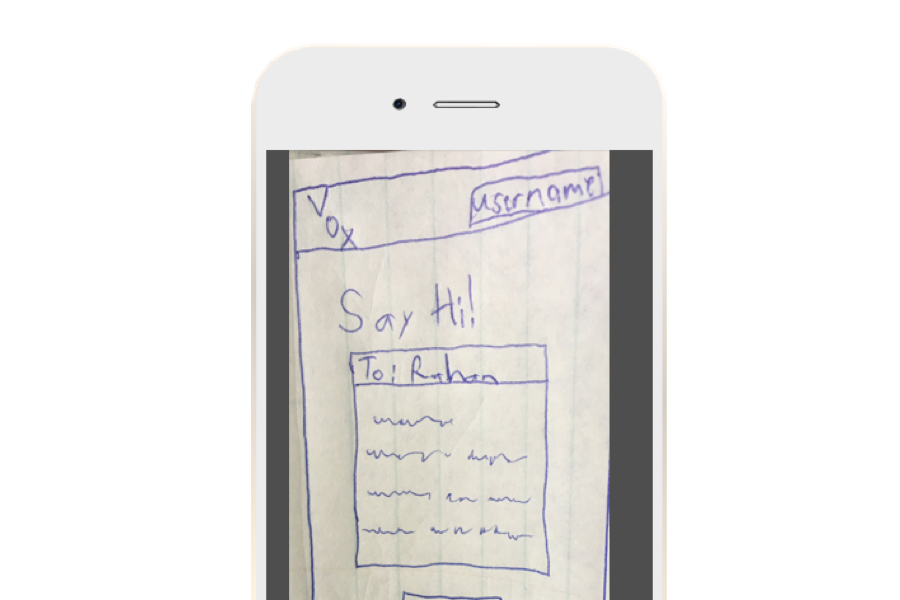 Vox
username
Say Hi!
To: Rahan